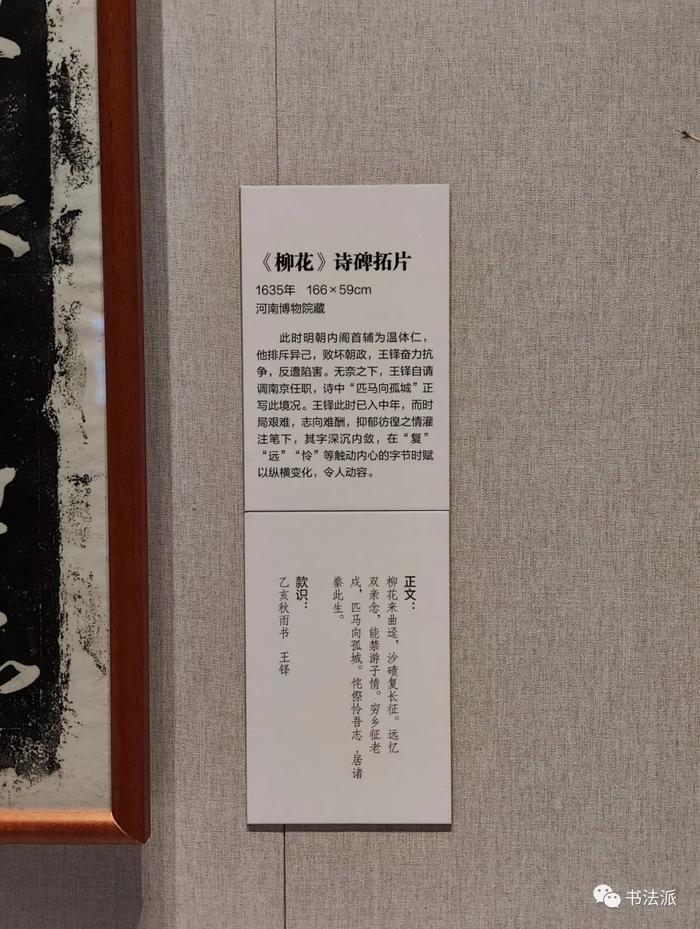 《柳花》诗碑拓片
1635年 166×59cm
河南博物院藏
此时明朝内阁首辅为温体仁，
他排斥异己，败坏朝政，王铎奋力抗
争，反遭陷害。无奈之下，王铎自请
调南京任职，诗中“匹马向孤城”正
写此境况。王铎此时已入中年，而时
局艰难，志向难酬，抑郁彷徨之情灌
注笔下，其字深沉内敛，在“复”
“远”“怜”等触动内心的字节时赋
以纵横变化，令人动容。
正文：
柳花来曲迳，沙碛复长征。远忆
双亲念，能禁游子情。穷乡征老
戍，匹马向孤城。侘傺怜吾志，居诸
豢此生。
款识：
乙亥秋雨书 王铎
书法派